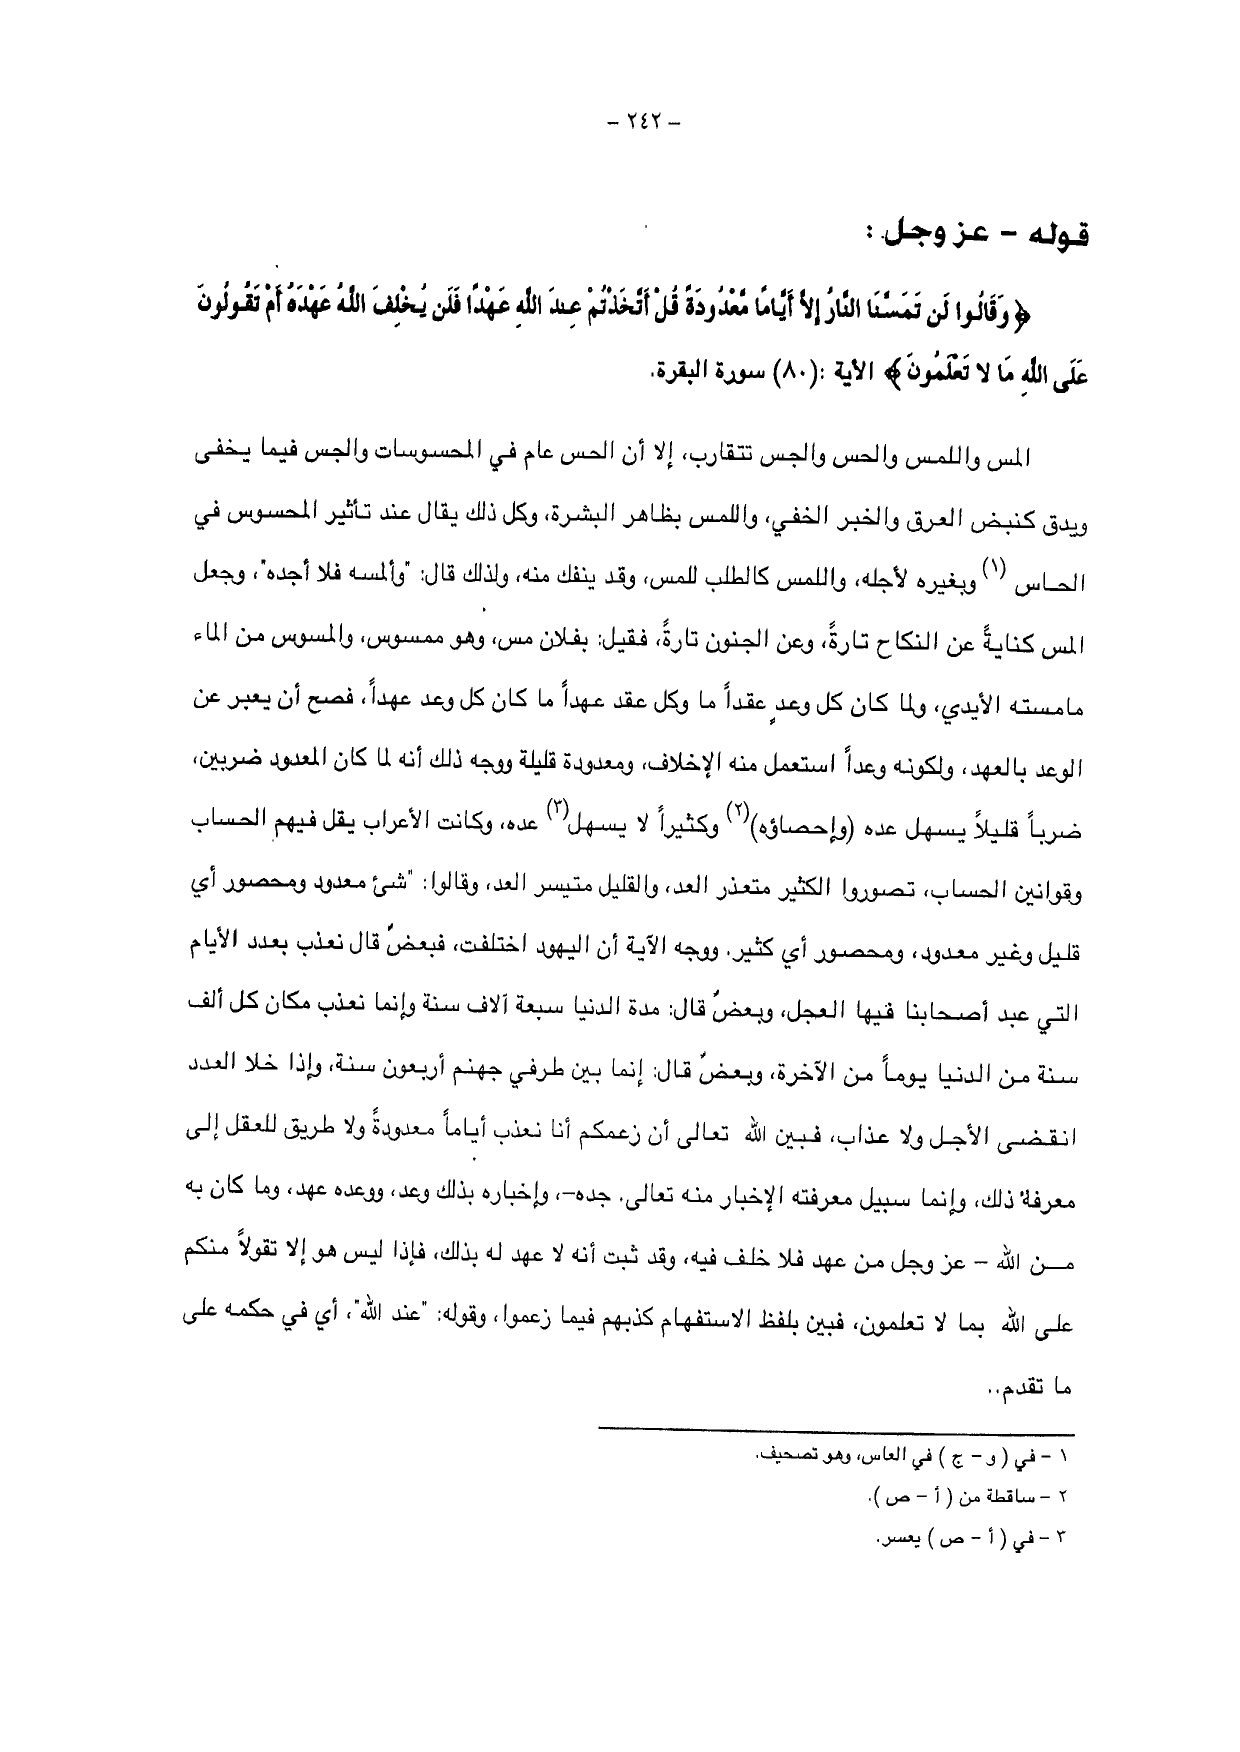 - ٢٤٢ -
قوله - عز وجل :
﴿وَقَالُوا لَن تَمَسَّنَا النَّارُ إِلاَّ أَيَّامًا مَّعْدُودَةً قُلْ أَتَّخَذْتُمْ عِندَ اللَّهِ عَهْدًا فَلَن يُخْلِفَ اللَّهُ عَهْدَهُ أَمْ تَقُولُونَ
عَلَى اللَّهِ مَا لا تَعْلَمُونَ﴾ الآية :(٨٠) سورة البقرة.
المس واللمس والحس والجس تتقارب، إلا أن الحس عام في المحسوسات والجس فيما يخفى
ويدق كنبض العرق والخبر الخفي، واللمس بظاهر البشرة، وكل ذلك يقال عند تأثير المحسوس في
الحاس (١) وبغيره لأجله، واللمس كالطلب للمس، وقد ينفك منه، ولذلك قال: "وألمسه فلا أجده"، وجعل
المس كنايةً عن النكاح تارةً، وعن الجنون تارةً، فقيل: بفلان مس، وهو ممسوس، والمسوس من الماء
مامسته الأيدي، ولما كان كل وعدٍ عقداً ما وكل عقد عهداً ما كان كل وعد عهداً، فصح أن يعبر عن
الوعد بالعهد، ولكونه وعداً استعمل منه الإخلاف، ومعدودة قليلة ووجه ذلك أنه لما كان المعدود ضربين،
ضرباً قليلاً يسهل عده (وإحصاؤه)(٢) وكثيراً لا يسهل(٣) عده، وكانت الأعراب يقل فيهم الحساب
وقوانين الحساب، تصوروا الكثير متعذر العد، والقليل متيسر العد، وقالوا: "شئ معدود ومحصور أي
قليل وغير معدود، ومحصور أي كثير. ووجه الآية أن اليهود اختلفت، فبعضٌ قال نعذب بعدد الأيام
التي عبد أصحابنا فيها العجل، وبعضٌ قال: مدة الدنيا سبعة آلاف سنة وإنما نعذب مكان كل ألف
سنة من الدنيا يوماً من الآخرة، وبعضٌ قال: إنما بين طرفي جهنم أربعون سنة، وإذا خلا العدد
انقضى الأجل ولا عذاب، فبين الله تعالى أن زعمكم أنا نعذب أياماً معدودةً ولا طريق للعقل إلى
معرفة ذلك، وإنما سبيل معرفته الإخبار منه تعالى. جده-، وإخباره بذلك وعد، ووعده عهد، وما كان به
مـن الله - عز وجل من عهد فلا خلف فيه، وقد ثبت أنه لا عهد له بذلك، فإذا ليس هو إلا تقولاً منكم
على الله بما لا تعلمون، فبين بلفظ الاستفهام كذبهم فيما زعموا، وقوله: "عند الله"، أي في حكمه على
ما تقدم..
١ - في ( و - ج ) في العاس، وهو تصحيف.
٢ - ساقطة من ( أ - ص ).
٣ - في ( أ - ص ) يعسر.